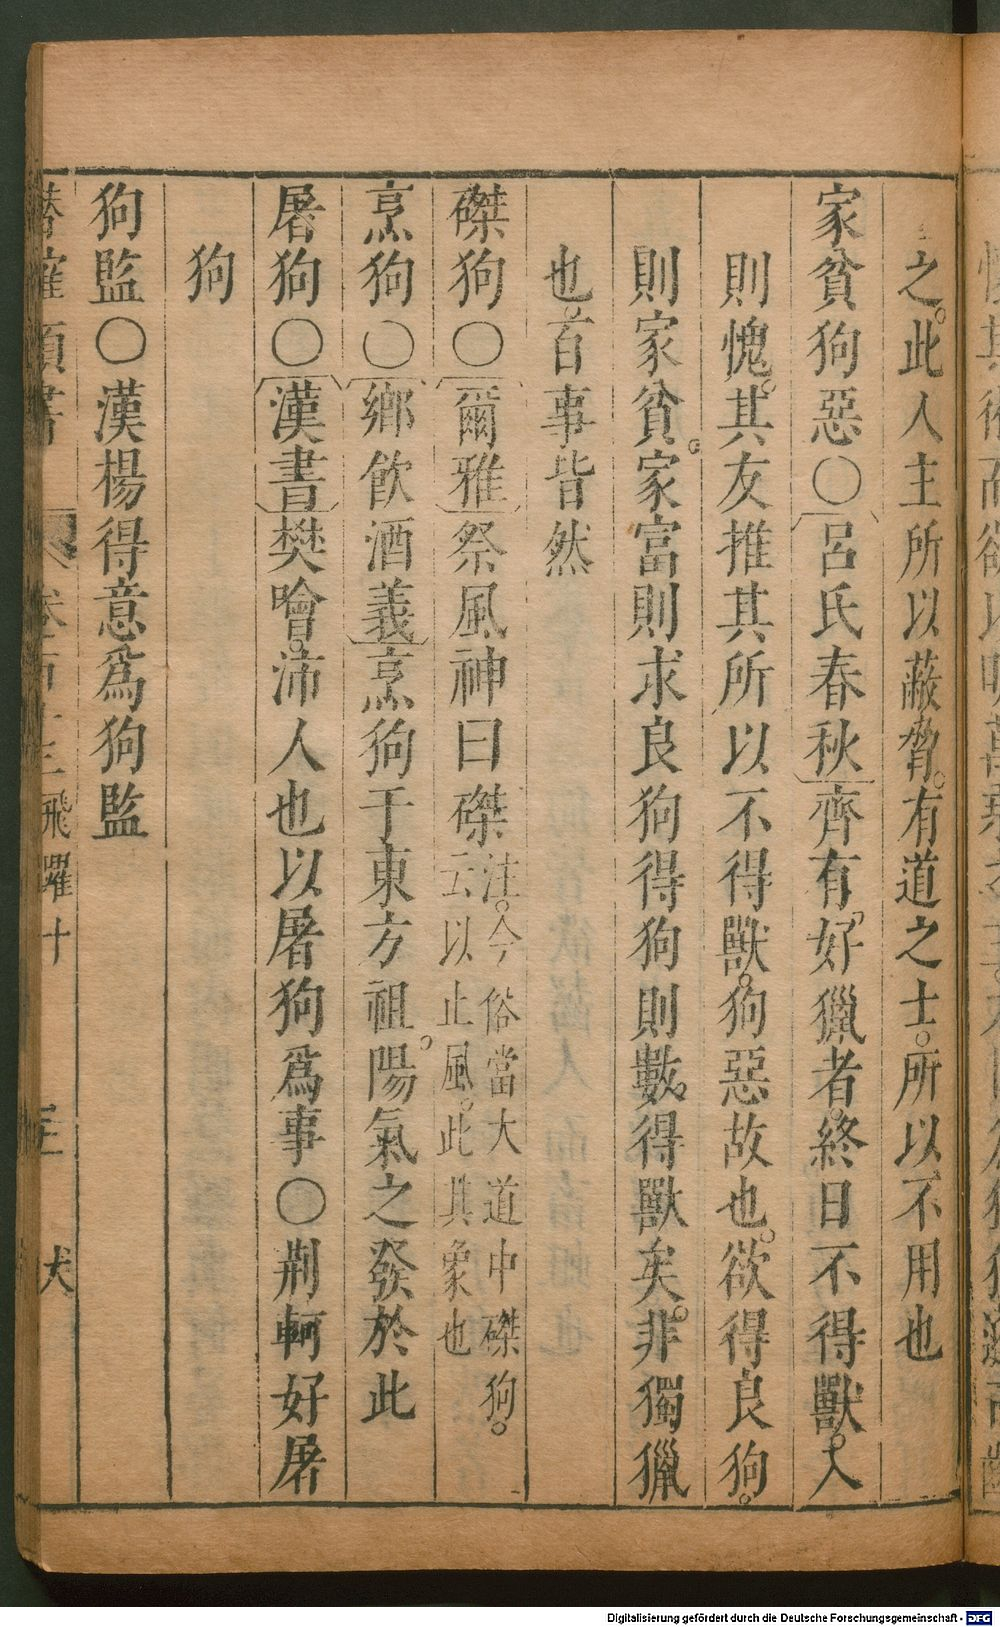 之此人主所以蔽脅有道之士所以不用也
家貧狗惡〇呂氏春秋齊有好獵者終日不得獸入
則愧其友推其所以不得獸狗惡故也欲得良狗
則家貧家富則求良狗得狗則數得獸矣非獨獵
也百事皆然
磔狗〇爾雅祭風神曰磔注今俗當大道中磔狗
云以止風此其象也
烹狗〇鄉飲酒義烹狗于東方祖陽氣之發於此
屠狗〇漢書樊噲沛人也以屠狗爲事〇荊軻好屠
狗
狗監〇漢楊得意爲狗監
潛確類書 卷百十三飛躍十 犬
Digitalisierung gefördert durch die Deutsche Forschungsgemeinschaft - DFG